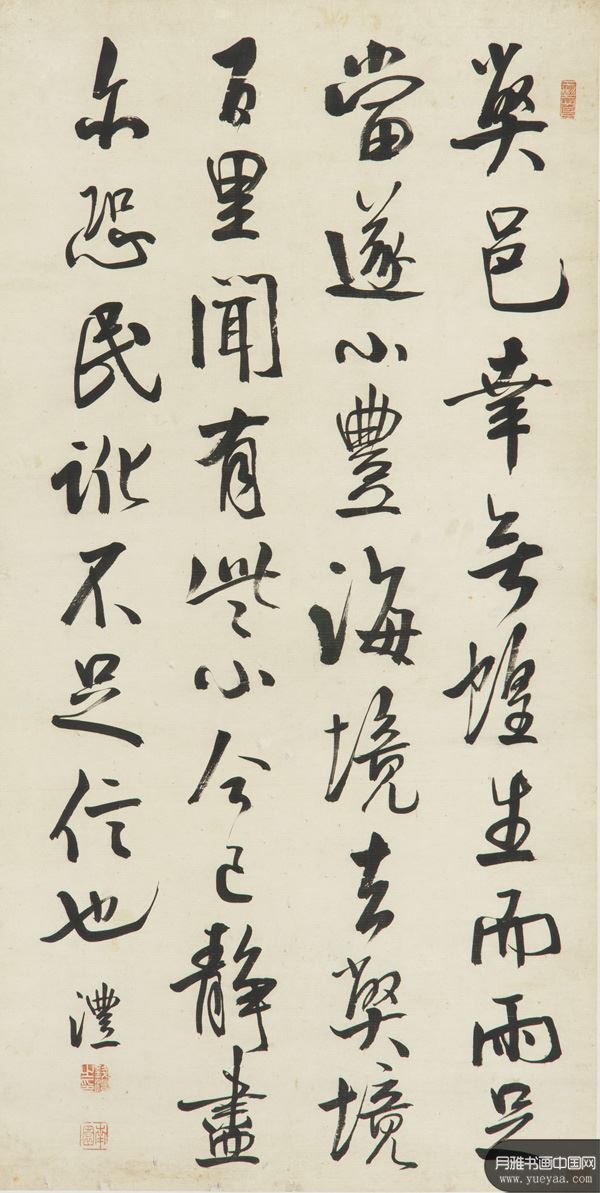 弊邑幸無蝗生而雨足
當遂小豐海境去弊境
百里聞有些小今已靜盡
尔恐民訛不足信也
澧
月雅书画中国网
www.yueyaa.com